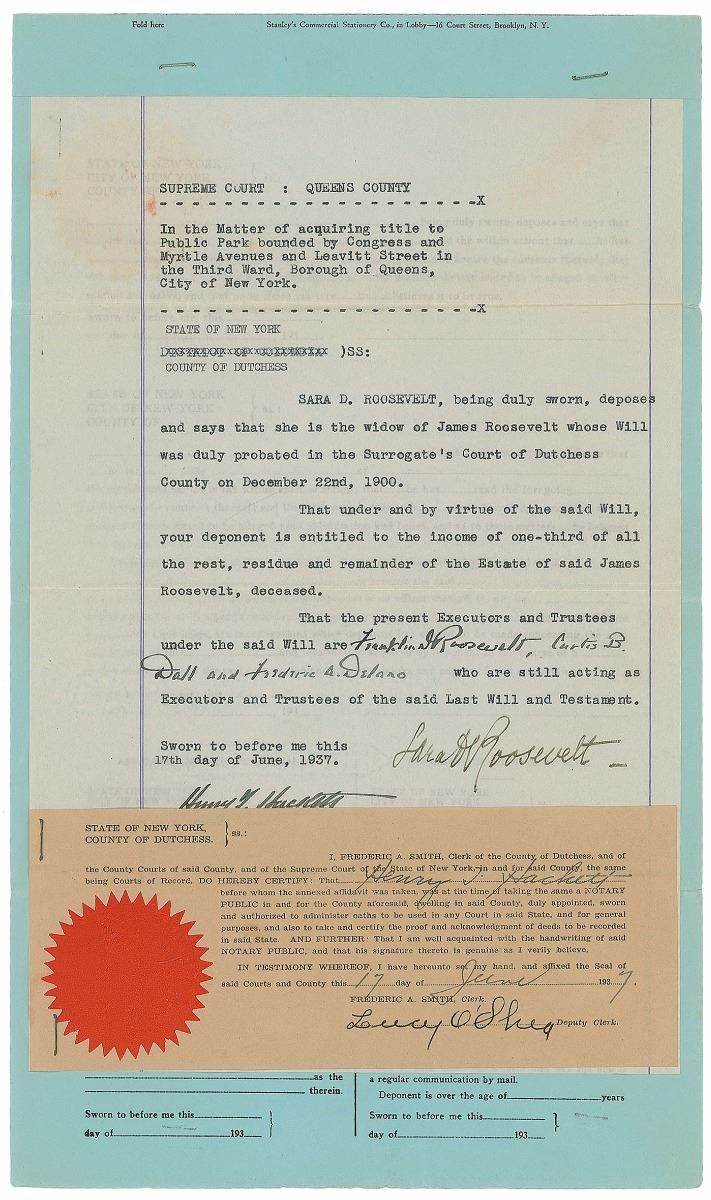 Fold here Stanley's Commercial Stationery Co., in Lobby—16 Court Street, Brooklyn, N. Y.
SUPREME COURT : QUEENS COUNTY
- - - - - - - - - - - - - - - - - - - -X
In the Matter of acquiring title to
Public Park bounded by Congress and
Myrtle Avenues and Leavitt Street in
the Third Ward, Borough of Queens,
City of New York.
- - - - - - - - - - - - - - - - - - - -X
STATE OF NEW YORK
)SS:
COUNTY OF DUTCHESS
SARA D. ROOSEVELT, being duly sworn, deposes
and says that she is the widow of James Roosevelt whose Will
was duly probated in the Surrogate's Court of Dutchess
County on December 22nd, 1900.
That under and by virtue of the said Will,
your deponent is entitled to the income of one-third of all
the rest, residue and remainder of the Estate of said James
Roosevelt, deceased.
That the present Executors and Trustees
under the said Will are Franklin D Roosevelt, Curtis B.
Dall and Frederic A. Delano who are still acting as
Executors and Trustees of the said Last Will and Testament.
Sworn to before me this
17th day of June, 1937.
Sara D Roosevelt
Henry T. Hackett
STATE OF NEW YORK,
COUNTY OF DUTCHESS. } ss.:
I, FREDERIC A. SMITH, Clerk of the County of Dutchess, and of
the County Courts of said County, and of the Supreme Court of the State of New York, in and for said County, the same
being Courts of Record, DO HEREBY CERTIFY: That Henry T. Hackett
before whom the annexed affidavit was taken, was at the time of taking the same a NOTARY
PUBLIC in and for the County aforesaid, dwelling in said County, duly appointed, sworn
and authorized to administer oaths to be used in any Court in said State, and for general
purposes, and also to take and certify the proof and acknowledgment of deeds to be recorded
in said State. AND FURTHER: That I am well acquainted with the handwriting of said
NOTARY PUBLIC, and that his signature thereto is genuine as I verily believe.
IN TESTIMONY WHEREOF, I have hereunto set my hand, and affixed the Seal of
said Courts and County this 17 day of June 1937.
FREDERIC A. SMITH, Clerk.
Lucy O'Shea Deputy Clerk.
as the
therein.
Sworn to before me this
day of 193
a regular communication by mail.
Deponent is over the age of years
Sworn to before me this
day of 193